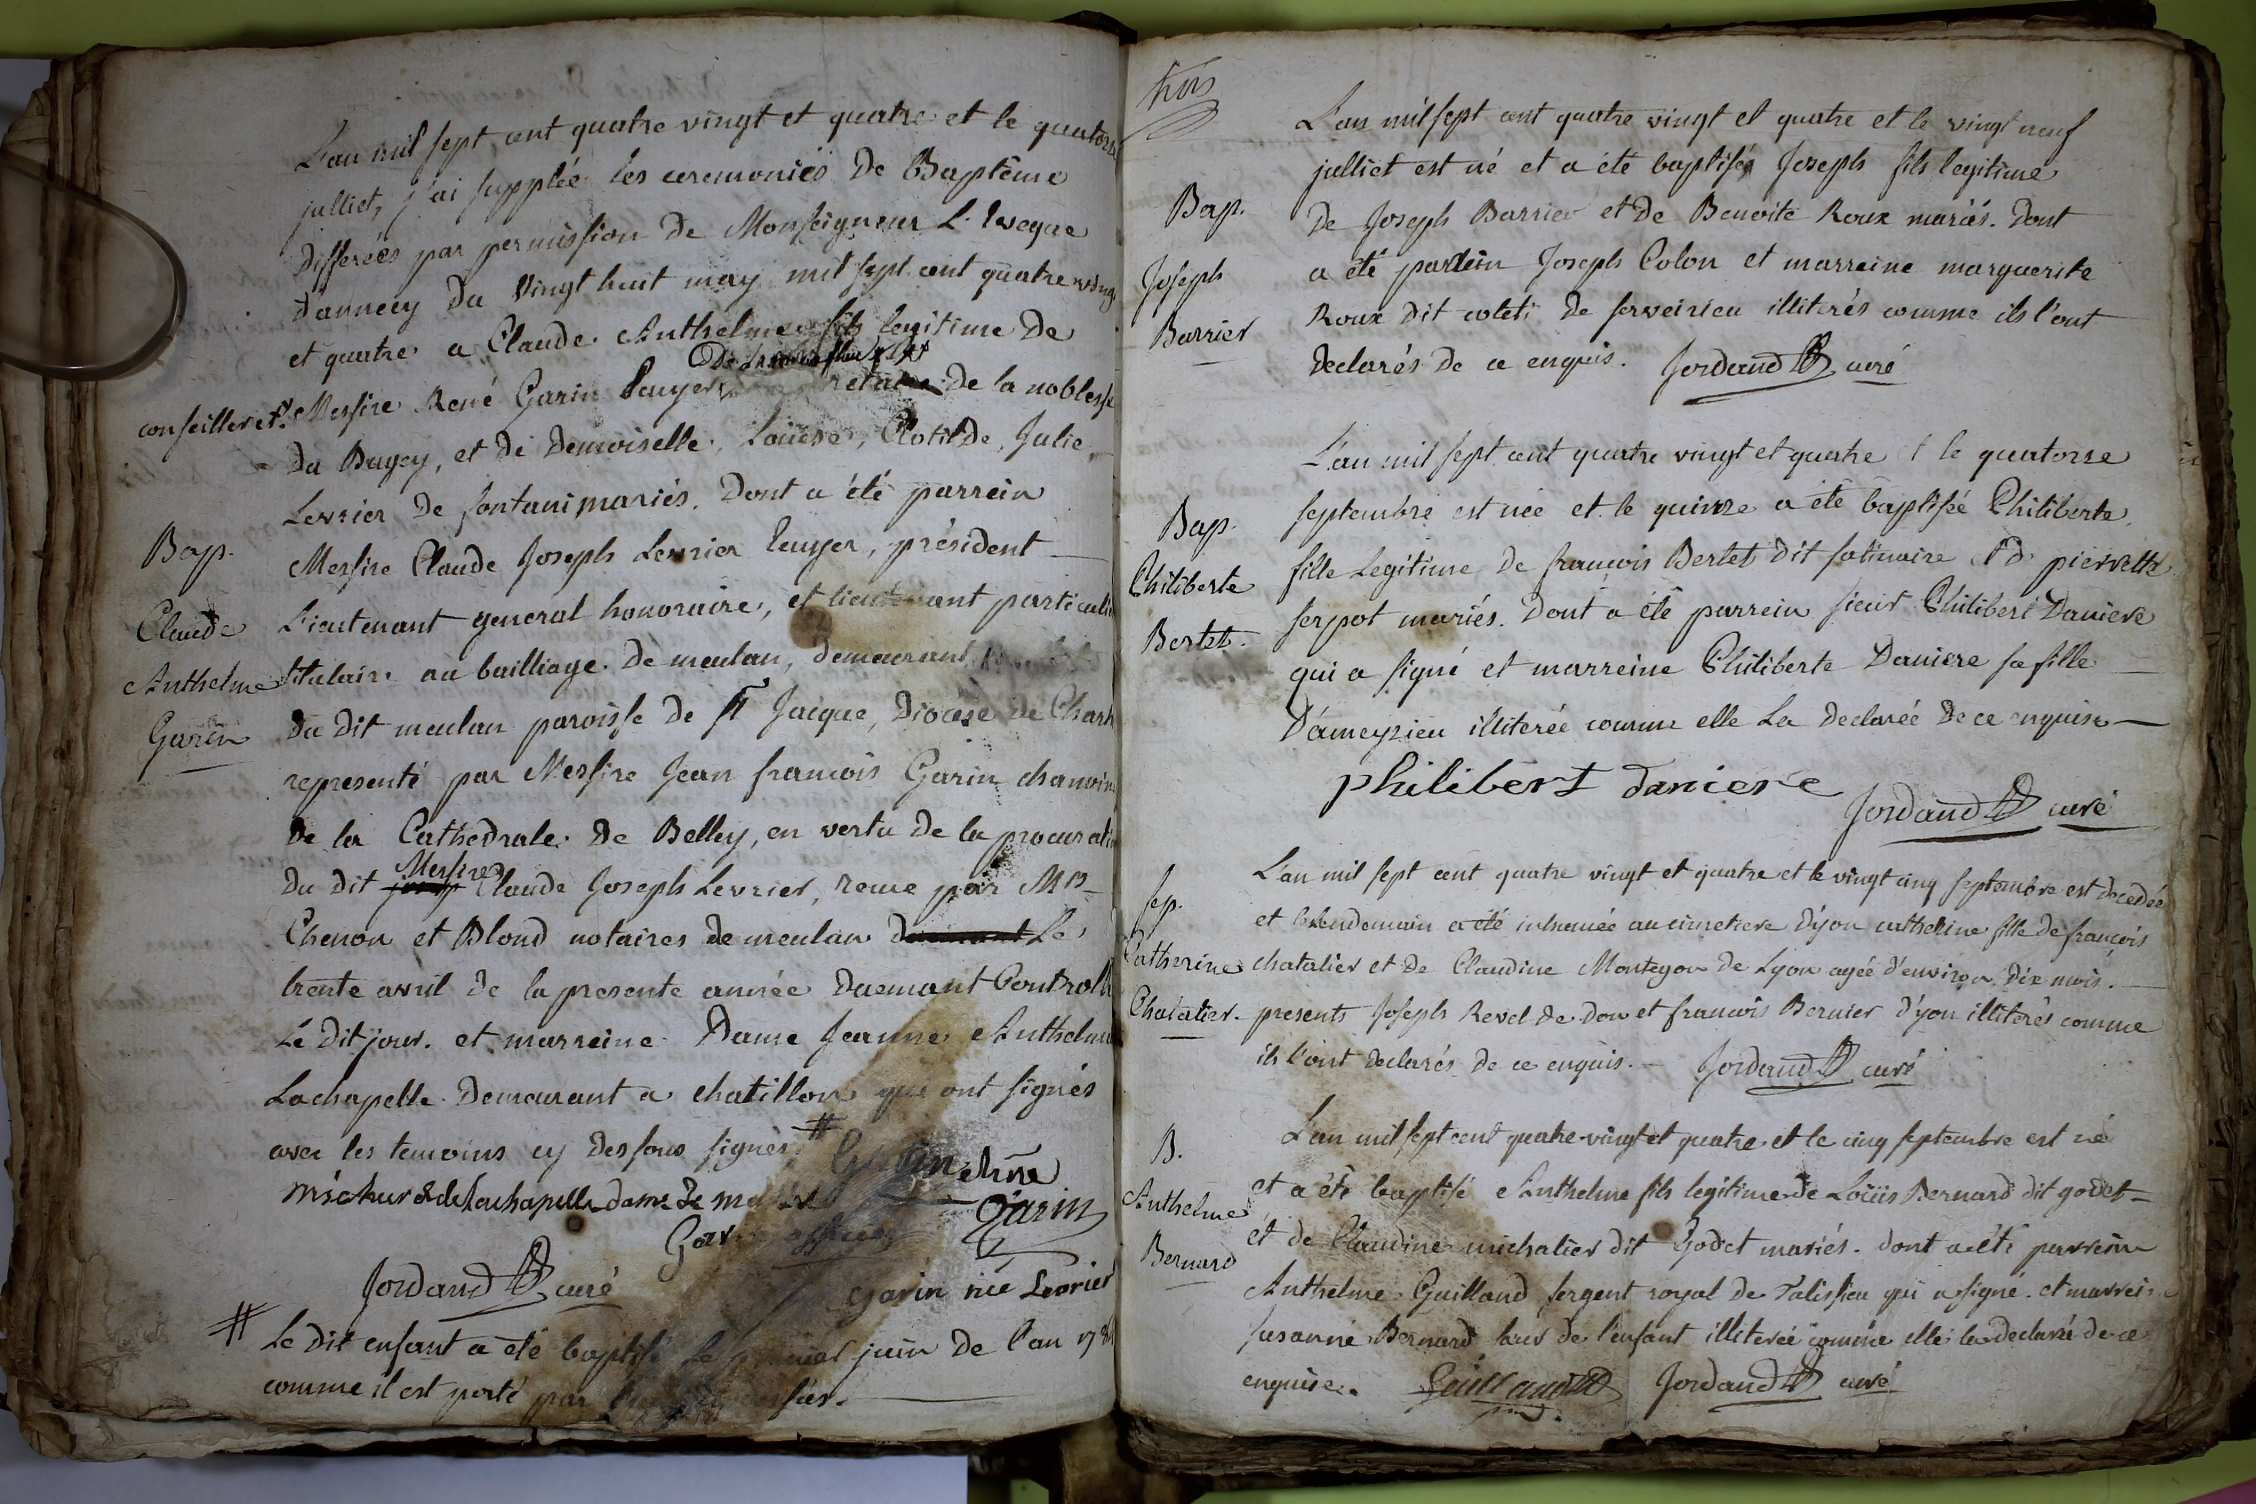 L'an mil sept cent quatre vingt et quatre et le quatorze
julliet, j'ai supplée les ceremonies de Baptême
differées par permission de Monseigneur L'Eveque
d'annecy du vingt huit may mil sept cent quatre vingt
et quatre a Claude Anthelme fils legitime de
conseiller et
Messire René Garin Ecuyer de la noblesse
du Bugey, et de Demoiselle Loüise, Clotilde, Julie
Levrier de fontani mariés. Dont a été parrein
Messire Claude Joseph Levrier Ecuyer, président
Lieutenant general honoraire, et lieutenant particulier
titulaire au bailliage de meulan, demeurant
du dit meulan paroisse de st Jacque, Diocese de Chart
representé par Messire Jean francois Garin chanoine
de la Cathedrale de Belley, en vertu de la procuration
Messire
du dit Claude Joseph Levrier, recue par
Chenon et Blond notaires de meulan Le
trente avril de la presente année duemant Controllé
Le dit jour. et marreine Dame Jeanne Anthelme
Lachapelle demeurant a chatillon qui ont signés
avec les temoins cy dessous signés #
Bap.
Claude
Anthelme
Garin
de Lachapelle dame de
Garin
Garin
Jordand curé
Garin née Levrier
# Le dit enfant a été baptisé le premier juin de l'an 178
comme il est porté par
trois
L'an mil sept cent quatre vingt et quatre et le vingt neuf
julliet est né et a été baptisé Joseph fils legitime
de Joseph Barrier et de Benoite Roux mariés. Dont
a été parrein Joseph Colon et marreine marguerite
Roux dit coleti de serveirieu illiterés comme ils l'ont
declarés de ce enquis. Jordand curé
Bap.
Joseph
Barrier
L'an mil sept cent quatre vingt et quatre et le quatorze
septembre est née et le quinze a été baptisée Philiberte
fille Legitime de francois Bertet dit salinaire et d. pierrette
serpot mariés. Dont a été parrein sieur Philibert Daniere
qui a signé et marreine Philiberte Daniere sa fille
D'ameyzieu illiterée comme elle La declarée de ce enquise
Bap.
Philiberte
Bertet.
philibert daniere
Jordand curé
L'an mil sept cent quatre vingt et quatre et le vingt cinq septembre est decedée
et le Lendemain a été inhumée au cimetiere D'yon catherine fille de francois
chatalier et de Claudine Montegon de Lyon agée d'environ dix mois.
presents Joseph Revel de don et francois Bernier d'yon illiterés comme
ils l'ont declarés de ce enquis. Jordand curé
sep.
Catherine
Chatalier.
L'an mil sept cent quatre vingt et quatre et le cinq septembre est né
et a été baptisé Anthelme fils legitime de Loüis Bernard dit godet
et de Claudine michalier dit Godet mariés. dont a été parrein
Anthelme Guilland sergent royal de Talissieu qui a signé. et marrei
susanne Bernard sœur de l'enfant illiterée comme elle la declarée de ce
enquise. Guilland Jordand curé
B.
Anthelme
Bernard